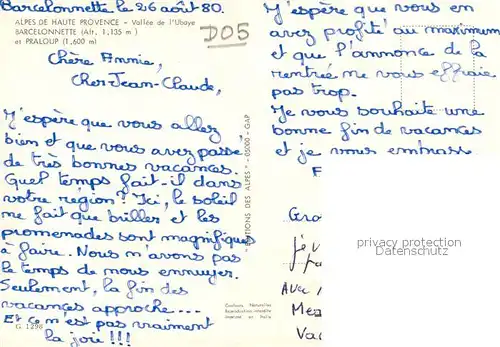 Barcelonnette le 26 août 80.
ALPES DE HAUTE PROVENCE - Vallée de l'Ubaye
BARCELONNETTE (Alt. 1.135 m)
et PRALOUP (1.600 m)
D05
Chère Annie,
Cher Jean-Claude,
J'espère que vous allez
bien et que vous avez passé
de très bonnes vacances.
Quel temps fait-il dans
votre région? Ici, le soleil
ne fait que briller et les
promenades sont magnifiques
à faire. Nous n'avons pas
le temps de nous ennuyer.
Seulement, la fin des
vacances approche...
Et ce n'est pas vraiment
la joie!!!
G. 1298
Couleurs Naturelles
Reproduction interdite
Imprimé en Italie
"EDITIONS DES ALPES" - 05000 - GAP
J'espère que vous en
avez profité au maximum
et que l'annonce de la
rentrée ne vous effraie
pas trop.
Je vous souhaite une
bonne fin de vacances
et je vous embrasse
privacy protection
Datenschutz